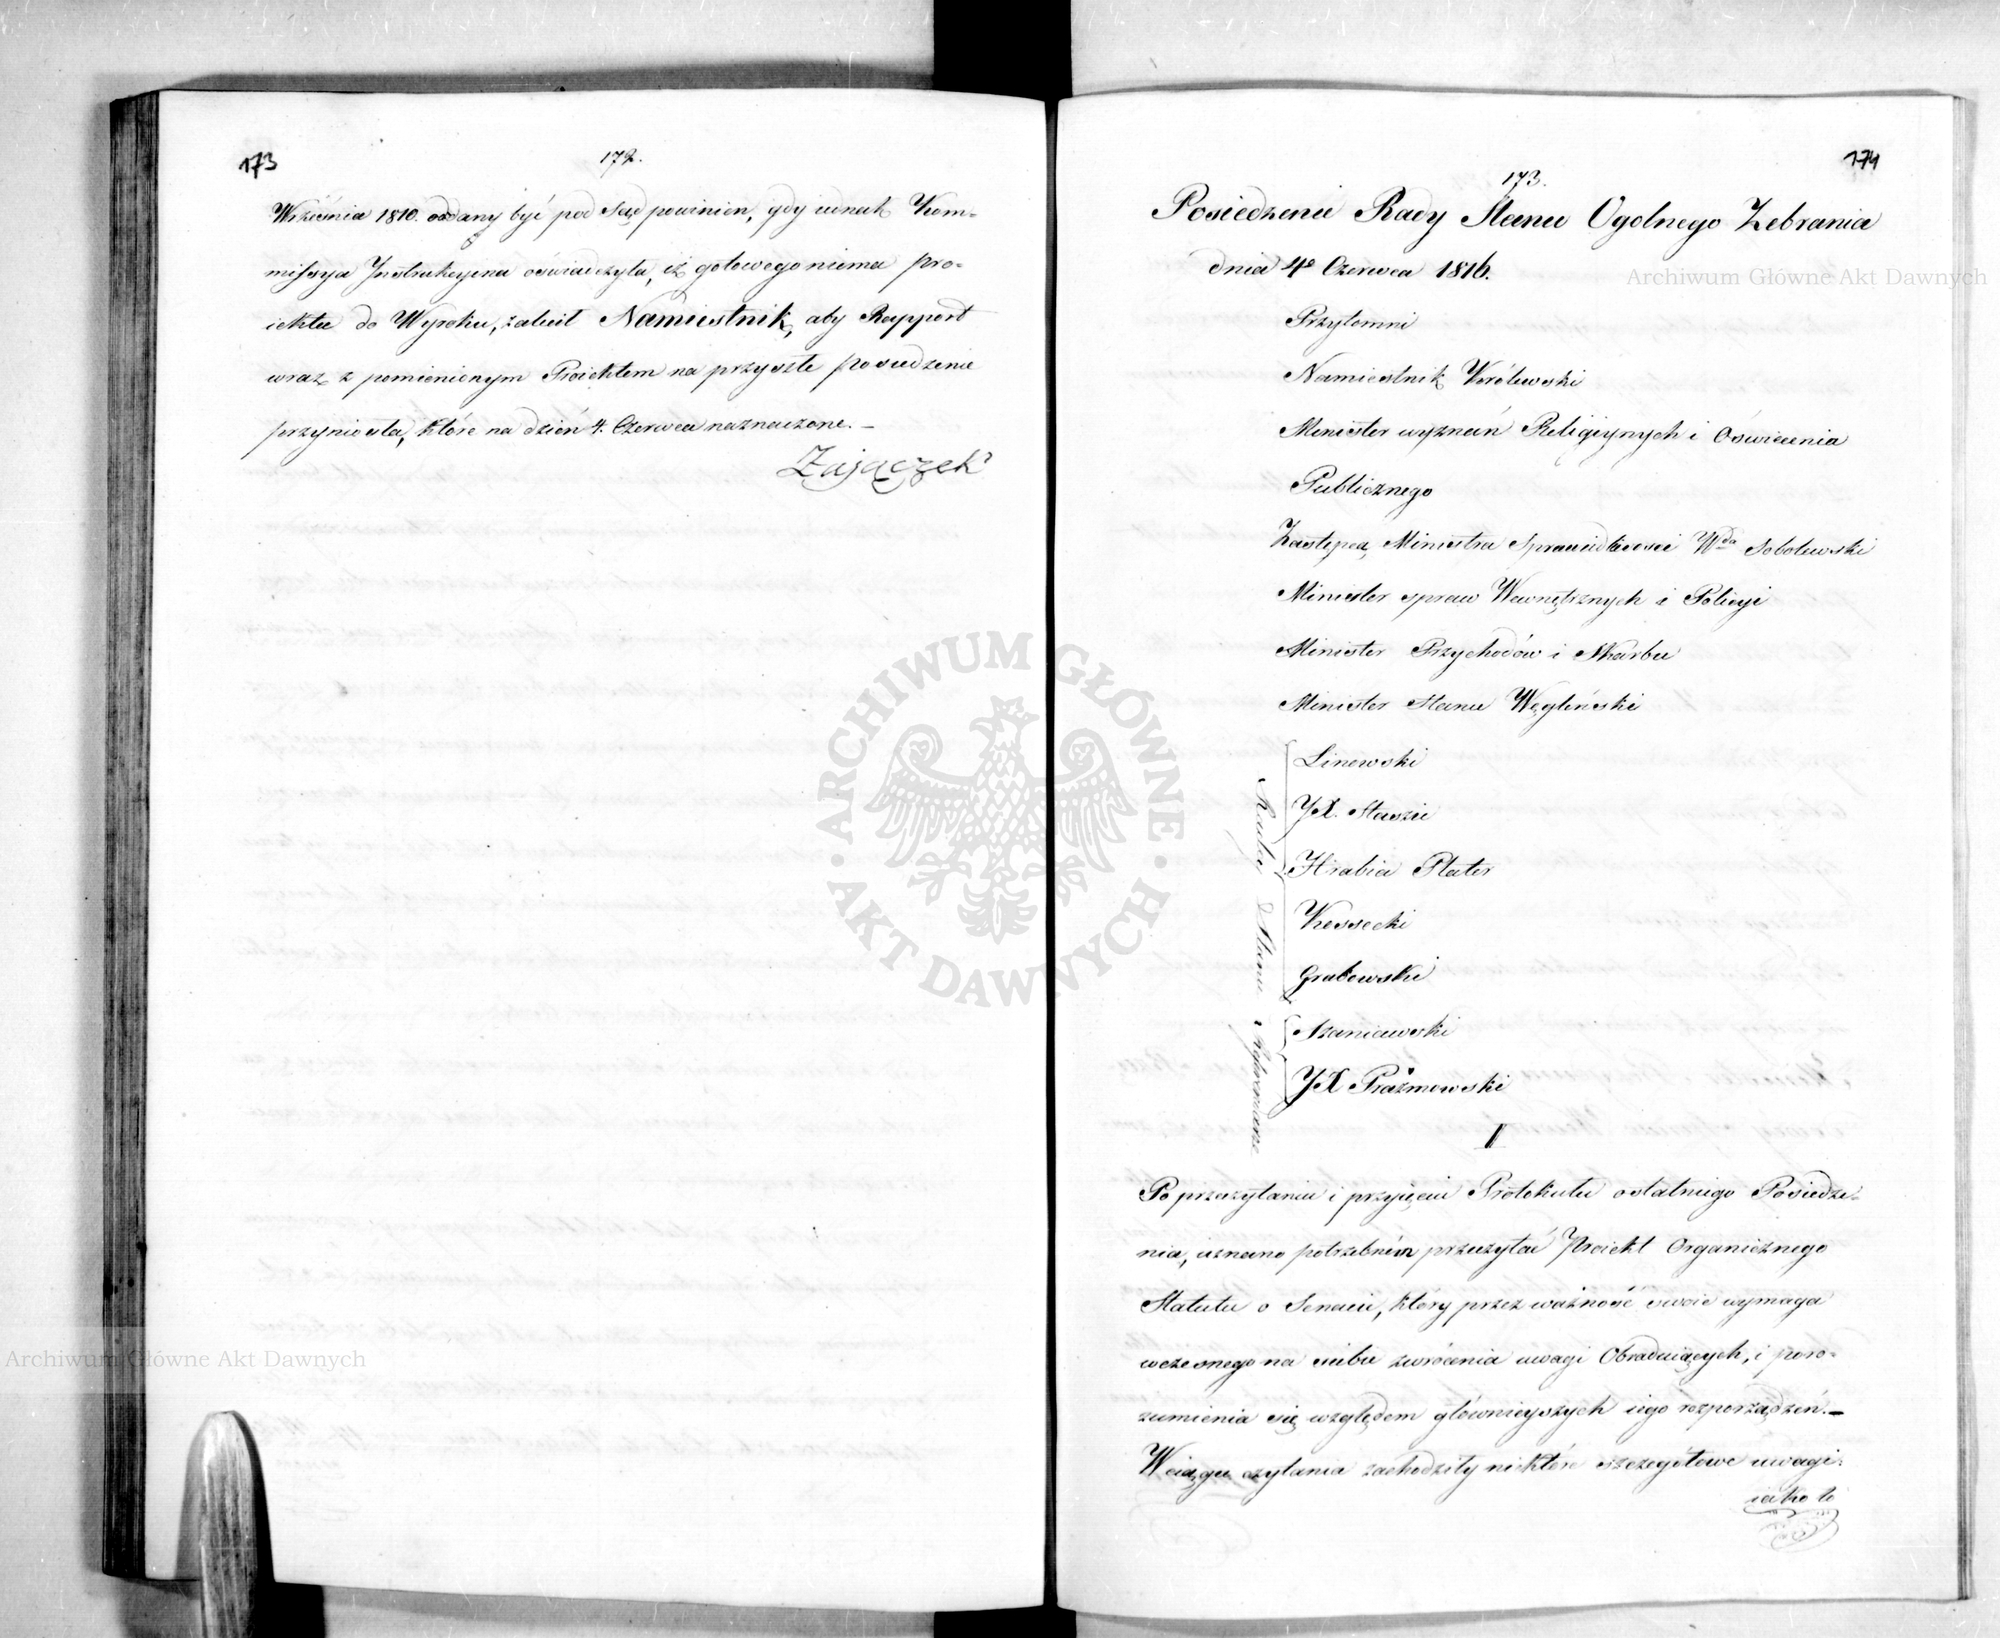 173
172.
Września 1810. oddany być pod Sąd powinien, gdy iednak Kom-
missya Instrukcyina oświadczyła, iż gotowego niema pro-
iektu do Wyroku, zalecił Namiestnik, aby Rapport
wraz z pomienionym Proiektem na przyszłe posiedzenie
przyniosła, które na dzień 4. Czerwca naznaczone. –
Zajączek
174
173.
Posiedzenie Rady Stanu Ogolnego Zebrania
dnia 4o Czerwca 1816.
Przytomni
Namiestnik Królewski
Minister wyznań Religiynych i Oświecenia
Publicznego
Zastępca Ministra Sprawiedliwości Wda Sobolewski
Minister spraw Wewnętrznych i Policyi
Minister Przychodów i Skarbu
Minister Stanu Węgleński
Radcy Stanu
Linowski
JX. Staszic
Hrabia Plater
Kossecki
Grabowski
i Referendarze
Szaniawski
JX Prażmowski
Po przeczytaniu i przyięciu Protokułu ostatniego Posiedze-
nia, uznano potrzebném przeczytać Proiekt Organicznego
Statutu o Senacie, który przez ważność swoie wymaga
wczesnego na siebie zwrócenia uwagi Obraduiących, i poro-
zumienia się względem główniejszych iego rozporządzeń. –
W ciągu czytania zachodziły niektóre szczegółowe uwagi:
iako to
Archiwum Główne Akt Dawnych
Archiwum Główne Akt Dawnych
ARCHIWUM GŁÓWNE · AKT DAWNYCH ·